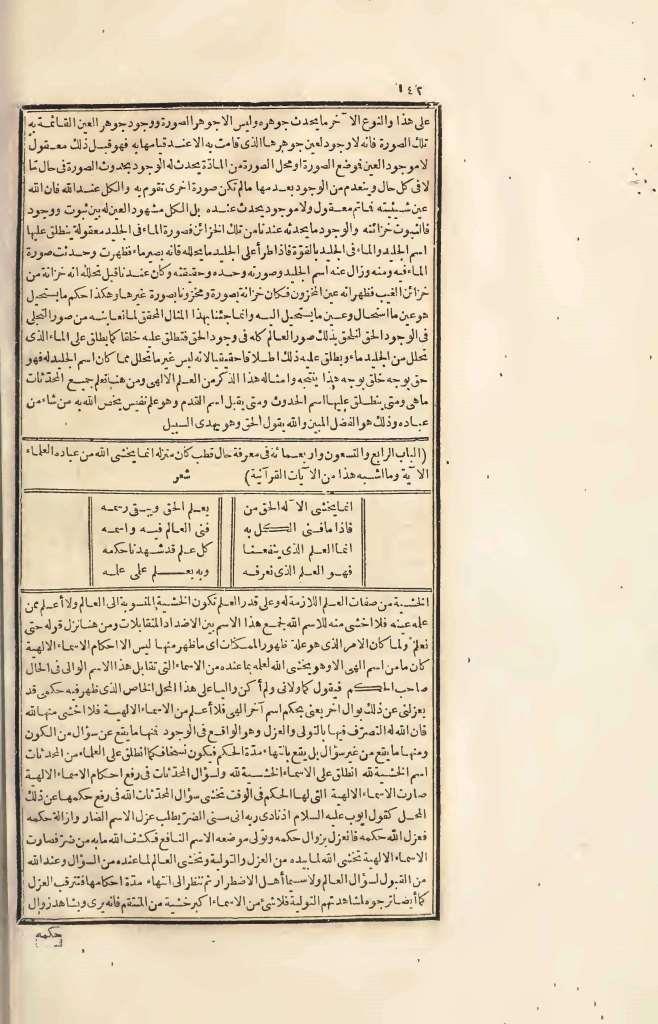 ١٤٢
على هذا والنوع الآخر ما يحدث جوهره وليس الا جوهر الصورة ووجود جوهر العين القائمة به
تلك الصورة فانه لا وجود لعين جوهرها الذى قامت به الا عند قيامها به فهو قبل ذلك معقول
لا موجود العين فموضع الصورة او محل الصورة من المادّة يحدث له الوجود بحدوث الصورة فى حال ما
لا فى كل حال وينعدم من الوجود بعدمها ما لم تكن صورة اخرى تقوم به والكل عند الله فان الله
عين شيئيته فما ثم معقول ولا موجود يحدث عنده بل الكل مشهود العين له بين ثبوت ووجود
فالثبوت خزائنه والوجود ما يحدثه عندنا من تلك الخزائن فصورة الماء فى الجليد معقولة ينطلق عليها
اسم الجليد والماء فى الجليد بالقوّة فاذا طرأ على الجليد ما يحلله فانه يصير ماء فظهرت وحدثت صورة
الماء فيه ومنه وزال عنه اسم الجليد وصورته وحده وحقيقته وكان عندنا قبل تحلله انه خزانة من
خزائن الغيب فظهر انه عين المخزون فكان خزانة بصورة ومخزونا بصورة غيرها وهكذا حكم ما يستحيل
هو عين ما استحال وعين ما يستحيل اليه وانما جئنا بهذا المثال المحقق لما نعاينه من صور التجلى
فى الوجود الحق لنلحق بذلك صور العالم كله فى وجود الحق فنطلق عليه خلقا كما يطلق على الماء الذى
تحلل من الجليد ماء ويطلق عليه ذلك اطلاقا حقيقيا لانه ليس غير ما تحلل مما كان اسم الجليد له فهو
حق بوجه خلق بوجه هذا ينتجه وامثاله هذا الذكر من العلم الالهى ومن هنا تعلم جميع المحدثات
ما هى ومتى ينطلق عليها اسم الحدوث ومتى يقبل اسم القدم وهو علم نفيس يخص الله به من شاء من
عباده وذلك هو الفضل المبين والله يقول الحق وهو يهدى السبيل
(الباب الرابع والتسعون واربعمائة فى معرفة حال قطب كان منزله انما يخشى الله من عباده العلماء
الآية وما اشبه هذا من الآيات القرآنية) شعر
انما يخشى الاله الحق من يعلم الحق ويبقى رسمه
فاذا ما فنى الكل به فنى العالم فيه واسمه
انما العلم الذى ينفعنا كل علم قد شهدنا حكمه
فهو العلم الذى نعرفه وبه يعلم على علمه
الخشية من صفات العلم اللازمة له وعلى قدر العلم تكون الخشية المنسوبة الى العالم ولا أعلم ممن
علمه عينه فلا اخشى منه للاسم الله لجمع هذا الاسم بين الاضداد المتقابلات ومن هنا نزل قوله حتى
نعلم ولما كان الامر الذى هو علة ظهور الممكنات اى ما ظهر منها ليس الا احكام الاسماء الالهية
كان ما من اسم الهى الا وهو يخشى الله لعلمه بما عنده من الاسماء التى تقابل هذا الاسم الوالى فى الحال
صاحب الحكم فيقول كما ولانى ولم أكن واليا على هذا المحل الخاص الذى ظهر فيه حكمى قد
يعزلنى عن ذلك بوال اخر يعنى بحكم اسم آخر الهى فلا أعلم من الاسماء الالهية فلا اخشى منها لله
فان الله له التصرّف فيها بالتولى والعزل وهو الواقع فى الوجود فمنها ما يقع عن سؤال من الكون
ومنها ما يقع من غير سؤال بل يقع بانتهاء مدّة الحكم فيكون نسخا فكما انطلق على العلماء من المحدثات
اسم الخشية لله انطلق على الاسماء الخشية لله ولسؤال المحدثات فى رفع احكام الاسماء الالهية
صارت الاسماء الالهية التى لها الحكم فى الوقت تخشى سؤال المحدثات الله فى رفع حكمها عن ذلك
المحل كقول ايوب عليه السلام اذ نادى ربه انى مسنى الضرّ يطلب عزل الاسم الضار وازالة حكمه
فعزل الله حكمه فانعزل بزوال حكمه وتولى موضعه الاسم النافع فكشف الله ما به من ضرّ فصارت
الاسماء الالهية تخشى الله لما بيده من العزل والتولية وتخشى العالم لما عنده من السؤال وعند الله
من القبول لسؤال العالم ولا سيما أهل الاضطرار ثم تنظر الى انتهاء مدة احكامها فتترقب العزل
كما أيضا ترجوه لمشاهدتهم التولية فلا شئ من الاسماء اكبر خشية من المنتقم فانه يرى ويشاهد زوال
حكمه